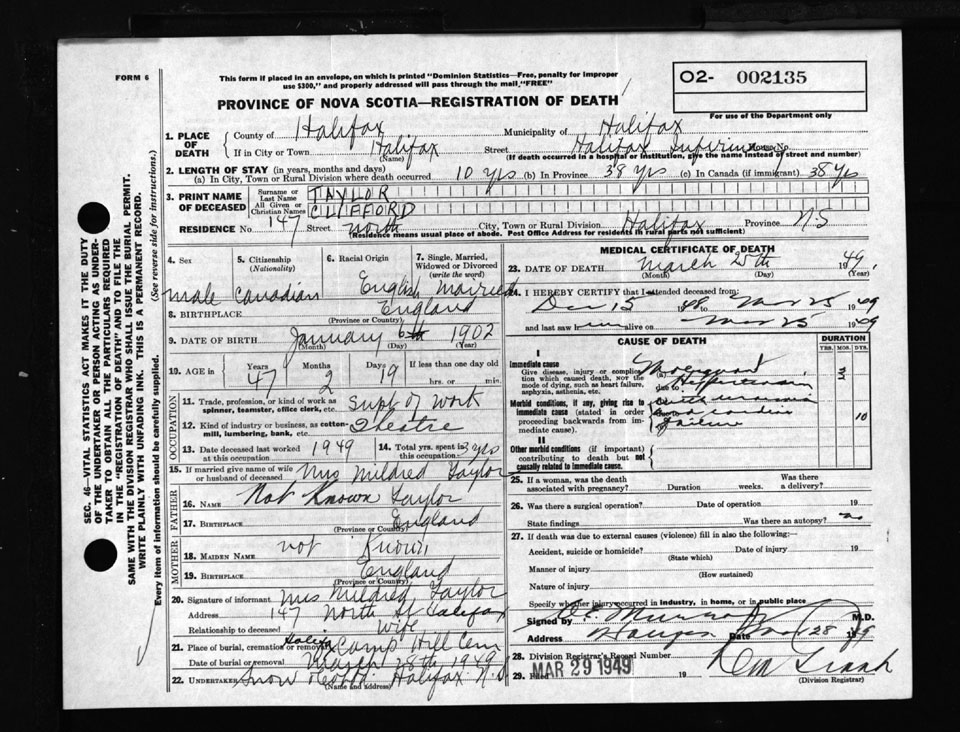 FORM 6
This form if placed in an envelope, on which is printed "Dominion Statistics—Free, penalty for improper
use $300," and properly addressed will pass through the mail "FREE"
O2- 002135
For use of the Department only
PROVINCE OF NOVA SCOTIA—REGISTRATION OF DEATH
1. PLACE OF DEATH
County of Halifax Municipality of Halifax
If in City or Town Halifax (Name) Street Halifax
(If death occurred in a hospital or institution, give the name instead of street and number)
2. LENGTH OF STAY (in years, months and days)
(a) In City, Town or Rural Division where death occurred 10 yrs (b) In Province 38 yrs (c) In Canada (if immigrant) 38 yrs
3. PRINT NAME OF DECEASED
Surname or Last Name TAYLOR
All Given or Christian Names CLIFFORD
RESIDENCE No 147 Street North City, Town or Rural Division Halifax Province N.S
(Residence means usual place of abode. Post Office Address for residents in rural parts not sufficient)
4. Sex
male
5. Citizenship (Nationality)
Canadian
6. Racial Origin
English
7. Single, Married, Widowed or Divorced (write the word)
Married
8. BIRTHPLACE England
(Province or Country)
9. DATE OF BIRTH January 6th 1902
(Month) (Day) (Year)
10. AGE in Years 47 Months 2 Days 19 If less than one day old
hrs. or min.
OCCUPATION
11. Trade, profession, or kind of work as spinner, teamster, office clerk, etc. Supt of Work
12. Kind of industry or business, as cotton-mill, lumbering, bank, etc. Theatre
13. Date deceased last worked at this occupation 1949
14. Total yrs. spent in this occupation yrs
15. If married give name of wife or husband of deceased Mrs Mildred Taylor
FATHER
16. Name Not Known Taylor
17. BIRTHPLACE England
(Province or Country)
MOTHER
18. MAIDEN NAME not Known
19. BIRTHPLACE England
(Province or Country)
20. Signature of informant Mrs Mildred Taylor
Address 147 North St Halifax
Relationship to deceased Wife
21. Place of burial, cremation or removal Halifax Camp Hill Cem
Date of burial or removal March 28th 1949
22. UNDERTAKER Snow Halifax N.S
(Name and address)
MEDICAL CERTIFICATE OF DEATH
23. DATE OF DEATH March 25th 1949
(Month) (Day)
24. I HEREBY CERTIFY that I attended deceased from:
Dec 15 1948 to Mar 25 1949
and last saw him alive on Mar 25 1949
CAUSE OF DEATH
DURATION
YRS. MOS. DYS.
I
Immediate cause
Give disease, injury or complication which caused death, NOT the mode of dying, such as heart failure, asphyxia, asthenia, etc.
(a) Malignant
due to Hypertension
Morbid conditions, if any, giving rise to immediate cause (stated in order proceeding backwards from immediate cause).
with uremia
and cardiac
failure 10
II
Other morbid conditions (if important) contributing to death but not causally related to immediate cause.
25. If a woman, was the death associated with pregnancy? Duration weeks. Was there a delivery?
26. Was there a surgical operation? Date of operation 19
State findings Was there an autopsy? no
27. If death was due to external causes (violence) fill in also the following:—
Accident, suicide or homicide? Date of injury 19
(State which)
Manner of injury
(How sustained)
Nature of injury
Specify whether injury occurred in industry, in home, or in public place
Signed by M.D.
Address Date Mar 28 1949
28. Division Registrar's Record Number
29. MAR 29 1949 19
(Division Registrar)
SEC. 46—VITAL STATISTICS ACT MAKES IT THE DUTY
OF THE UNDERTAKER OR PERSON ACTING AS UNDER-
TAKER TO OBTAIN ALL THE PARTICULARS REQUIRED
IN THE "REGISTRATION OF DEATH" AND TO FILE THE
SAME WITH THE DIVISION REGISTRAR WHO SHALL ISSUE THE BURIAL PERMIT.
WRITE PLAINLY WITH UNFADING INK. THIS IS A PERMANENT RECORD.
Every item of information should be carefully supplied. (See reverse side for instructions.)